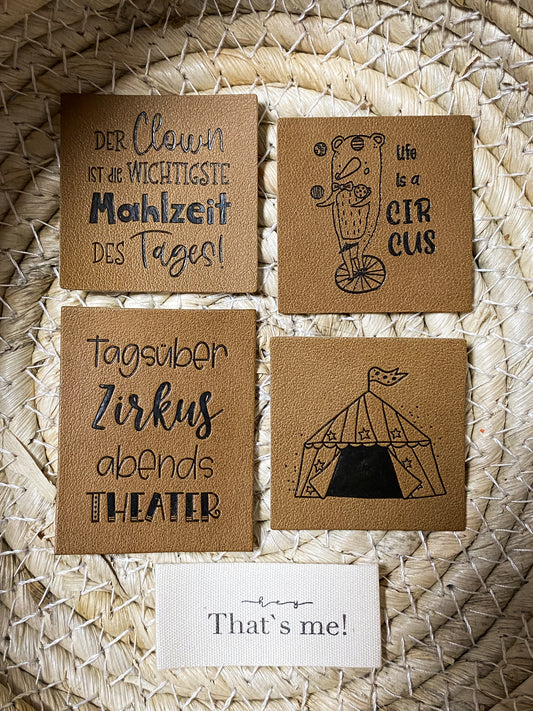 DER Clown
IST die WICHTIGSTE
Mahlzeit
DES Tages!
Life
is a
CIR
CUS
Tagsüber
Zirkus
abends
THEATER
hey
That`s me!